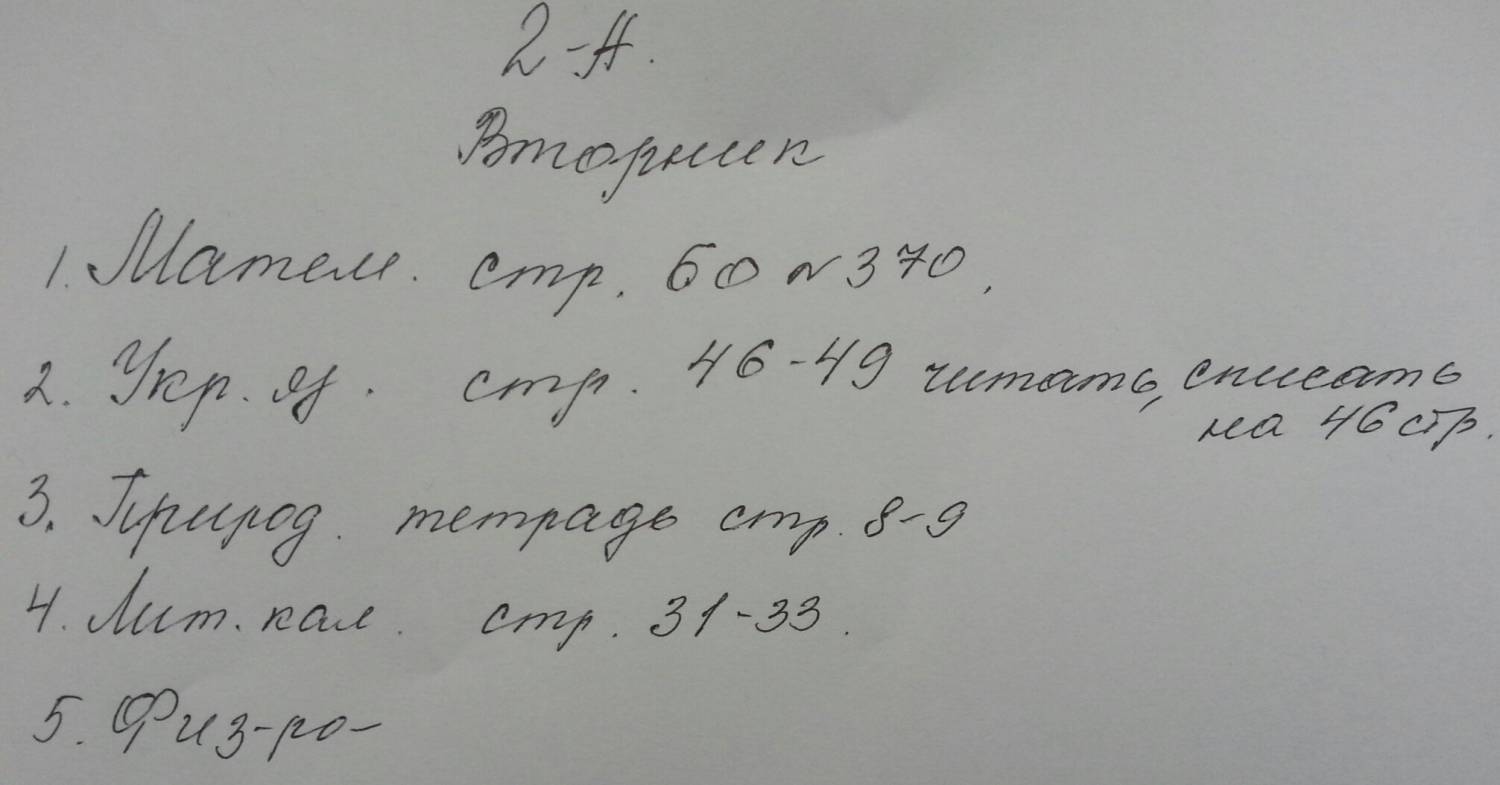 2-А.
Вторник
1. Матем. стр. 60 № 370.
2. Укр. яз. стр. 46-49 читать, списать
на 46 стр.
3. Природ. тетрадь стр. 8-9
4. Лит. кал. стр. 31-33.
5. Физ-ра-